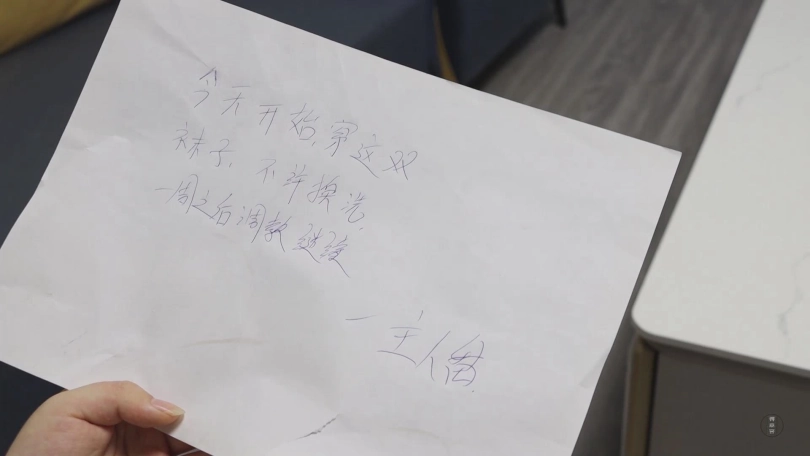 今天开始,穿这双
袜子,不许换洗
一周之后调教进度
—主人留